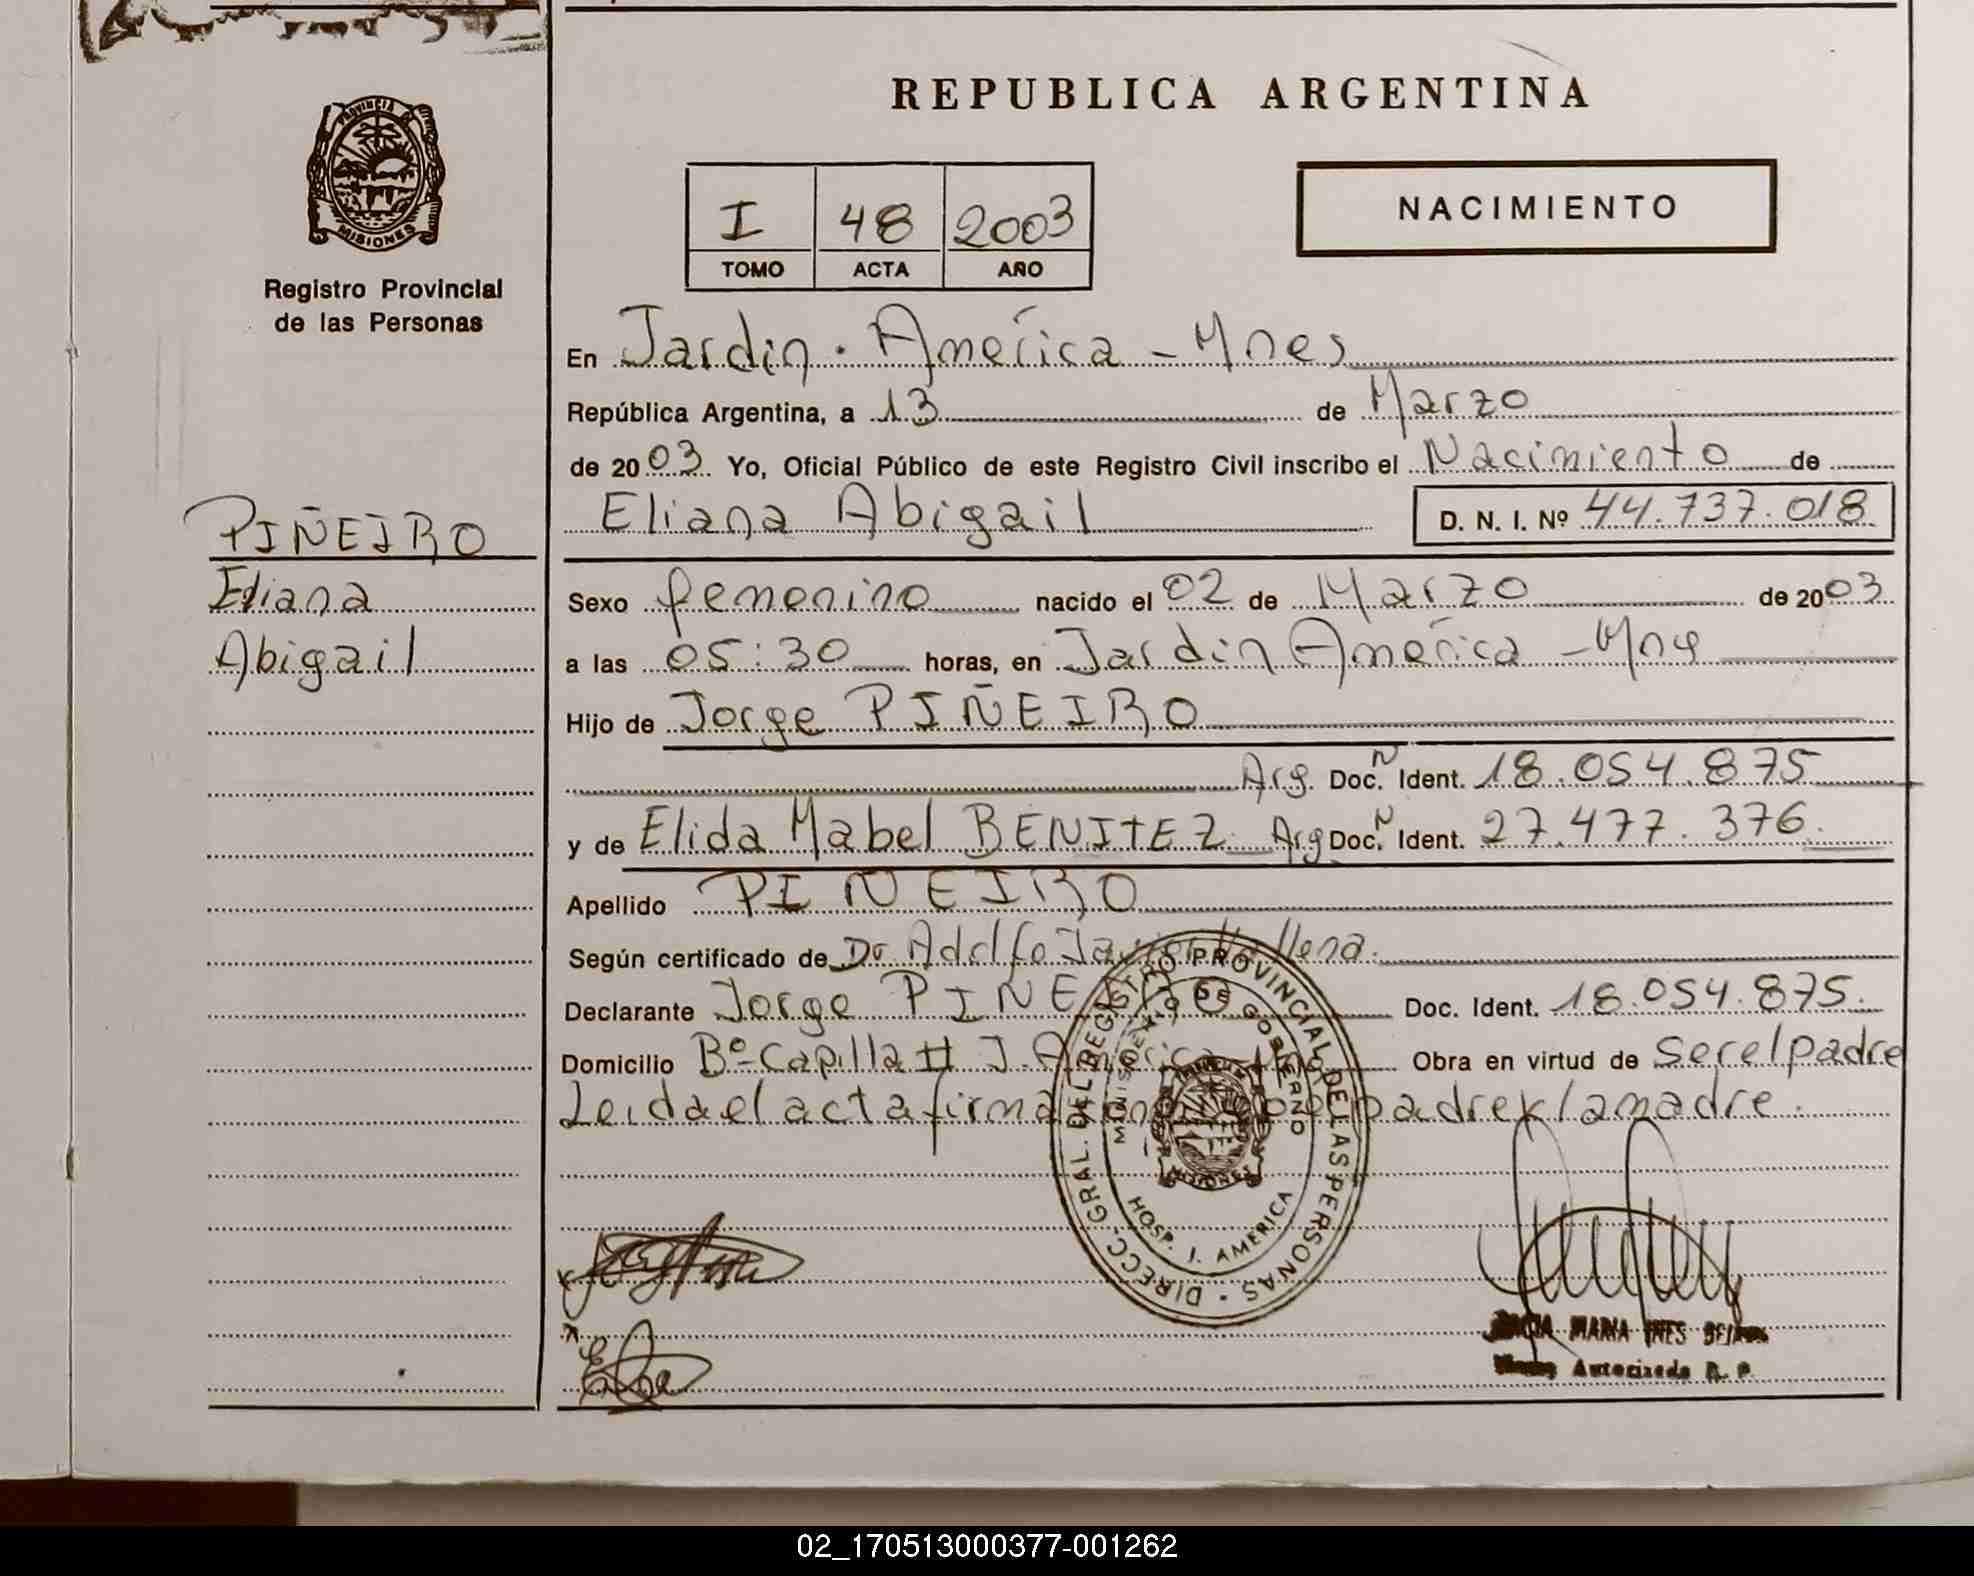 REPUBLICA ARGENTINA
PROVINCIA DE
MISIONES
Registro Provincial
de las Personas
I 48 2003
TOMO ACTA AÑO
NACIMIENTO
En Jardin. América - Mnes
República Argentina, a 13 de Marzo
de 2003 Yo, Oficial Público de este Registro Civil inscribo el Nacimiento de
Eliana Abigail D. N. I. Nº 44.737.018
PIÑEIRO
Eliana
Abigail
Sexo femenino nacido el 02 de Marzo de 2003
a las 05:30 horas, en Jardin América - Mnes
Hijo de Jorge PIÑEIRO
Arg. Doc. N Ident. 18.054.875
y de Elida Mabel BENITEZ Arg Doc. N Ident. 27.477.376.
Apellido PIÑEIRO
Según certificado de Dr Adolfo Javier
Declarante Jorge PIÑEIRO Doc. Ident. 18.054.875.
Domicilio Bº Capilla II J. América - Mnes Obra en virtud de ser el padre
Leida el acta firman el padre y la madre.
DIRECC. GRAL. DEL REGISTRO PROVINCIAL DE LAS PERSONAS
MINISTERIO DE GOBIERNO
HOSP. J. AMERICA
MISIONES
MARIA INES
Autorizada R. P.
02_170513000377-001262